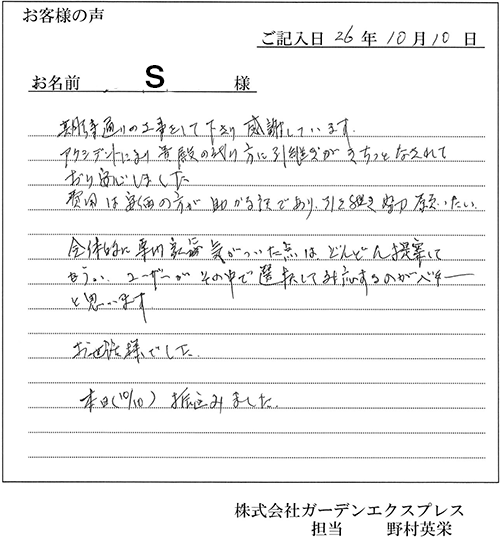 お客様の声
ご記入日 26 年 10 月 10 日
お名前 S 様
期待通りの工事をして下さり感謝しています。
アクシデントにより貴殿の代り方に引継ぎがきちっとなされて
おり安心しました
費用は安価の方が助かる訳であり、引き続き努力願いたい。
全体的に専門家 気がついた点はどんどん提案して
もらい、ユーザーがその中で選択して対応するのがベター
と思います
お世話様でした。
本日(10/10) 振込みました。
株式会社ガーデンエクスプレス
担当 野村英栄